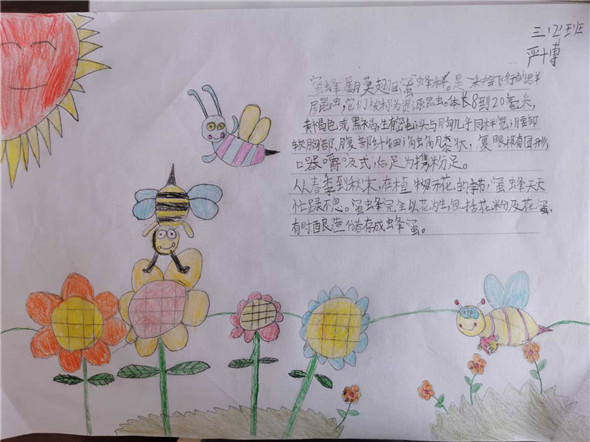 三(2)班
严博
蜜蜂属膜翅目蜜蜂科。是一类会飞行的群
居昆虫,它们被称为资源昆虫。体长8到20毫米,
黄褐色或黑褐色,生有密毛;头与胸几乎同样宽;
触胸部,腹部 椭圆形,
口器嚼吸式;后足为携粉足。
从春季到秋末,在植物开花的季节,蜜蜂天天
忙碌不息。蜜蜂完全以花为生,包括花粉及花蜜,
有时 贮存成蜂蜜。